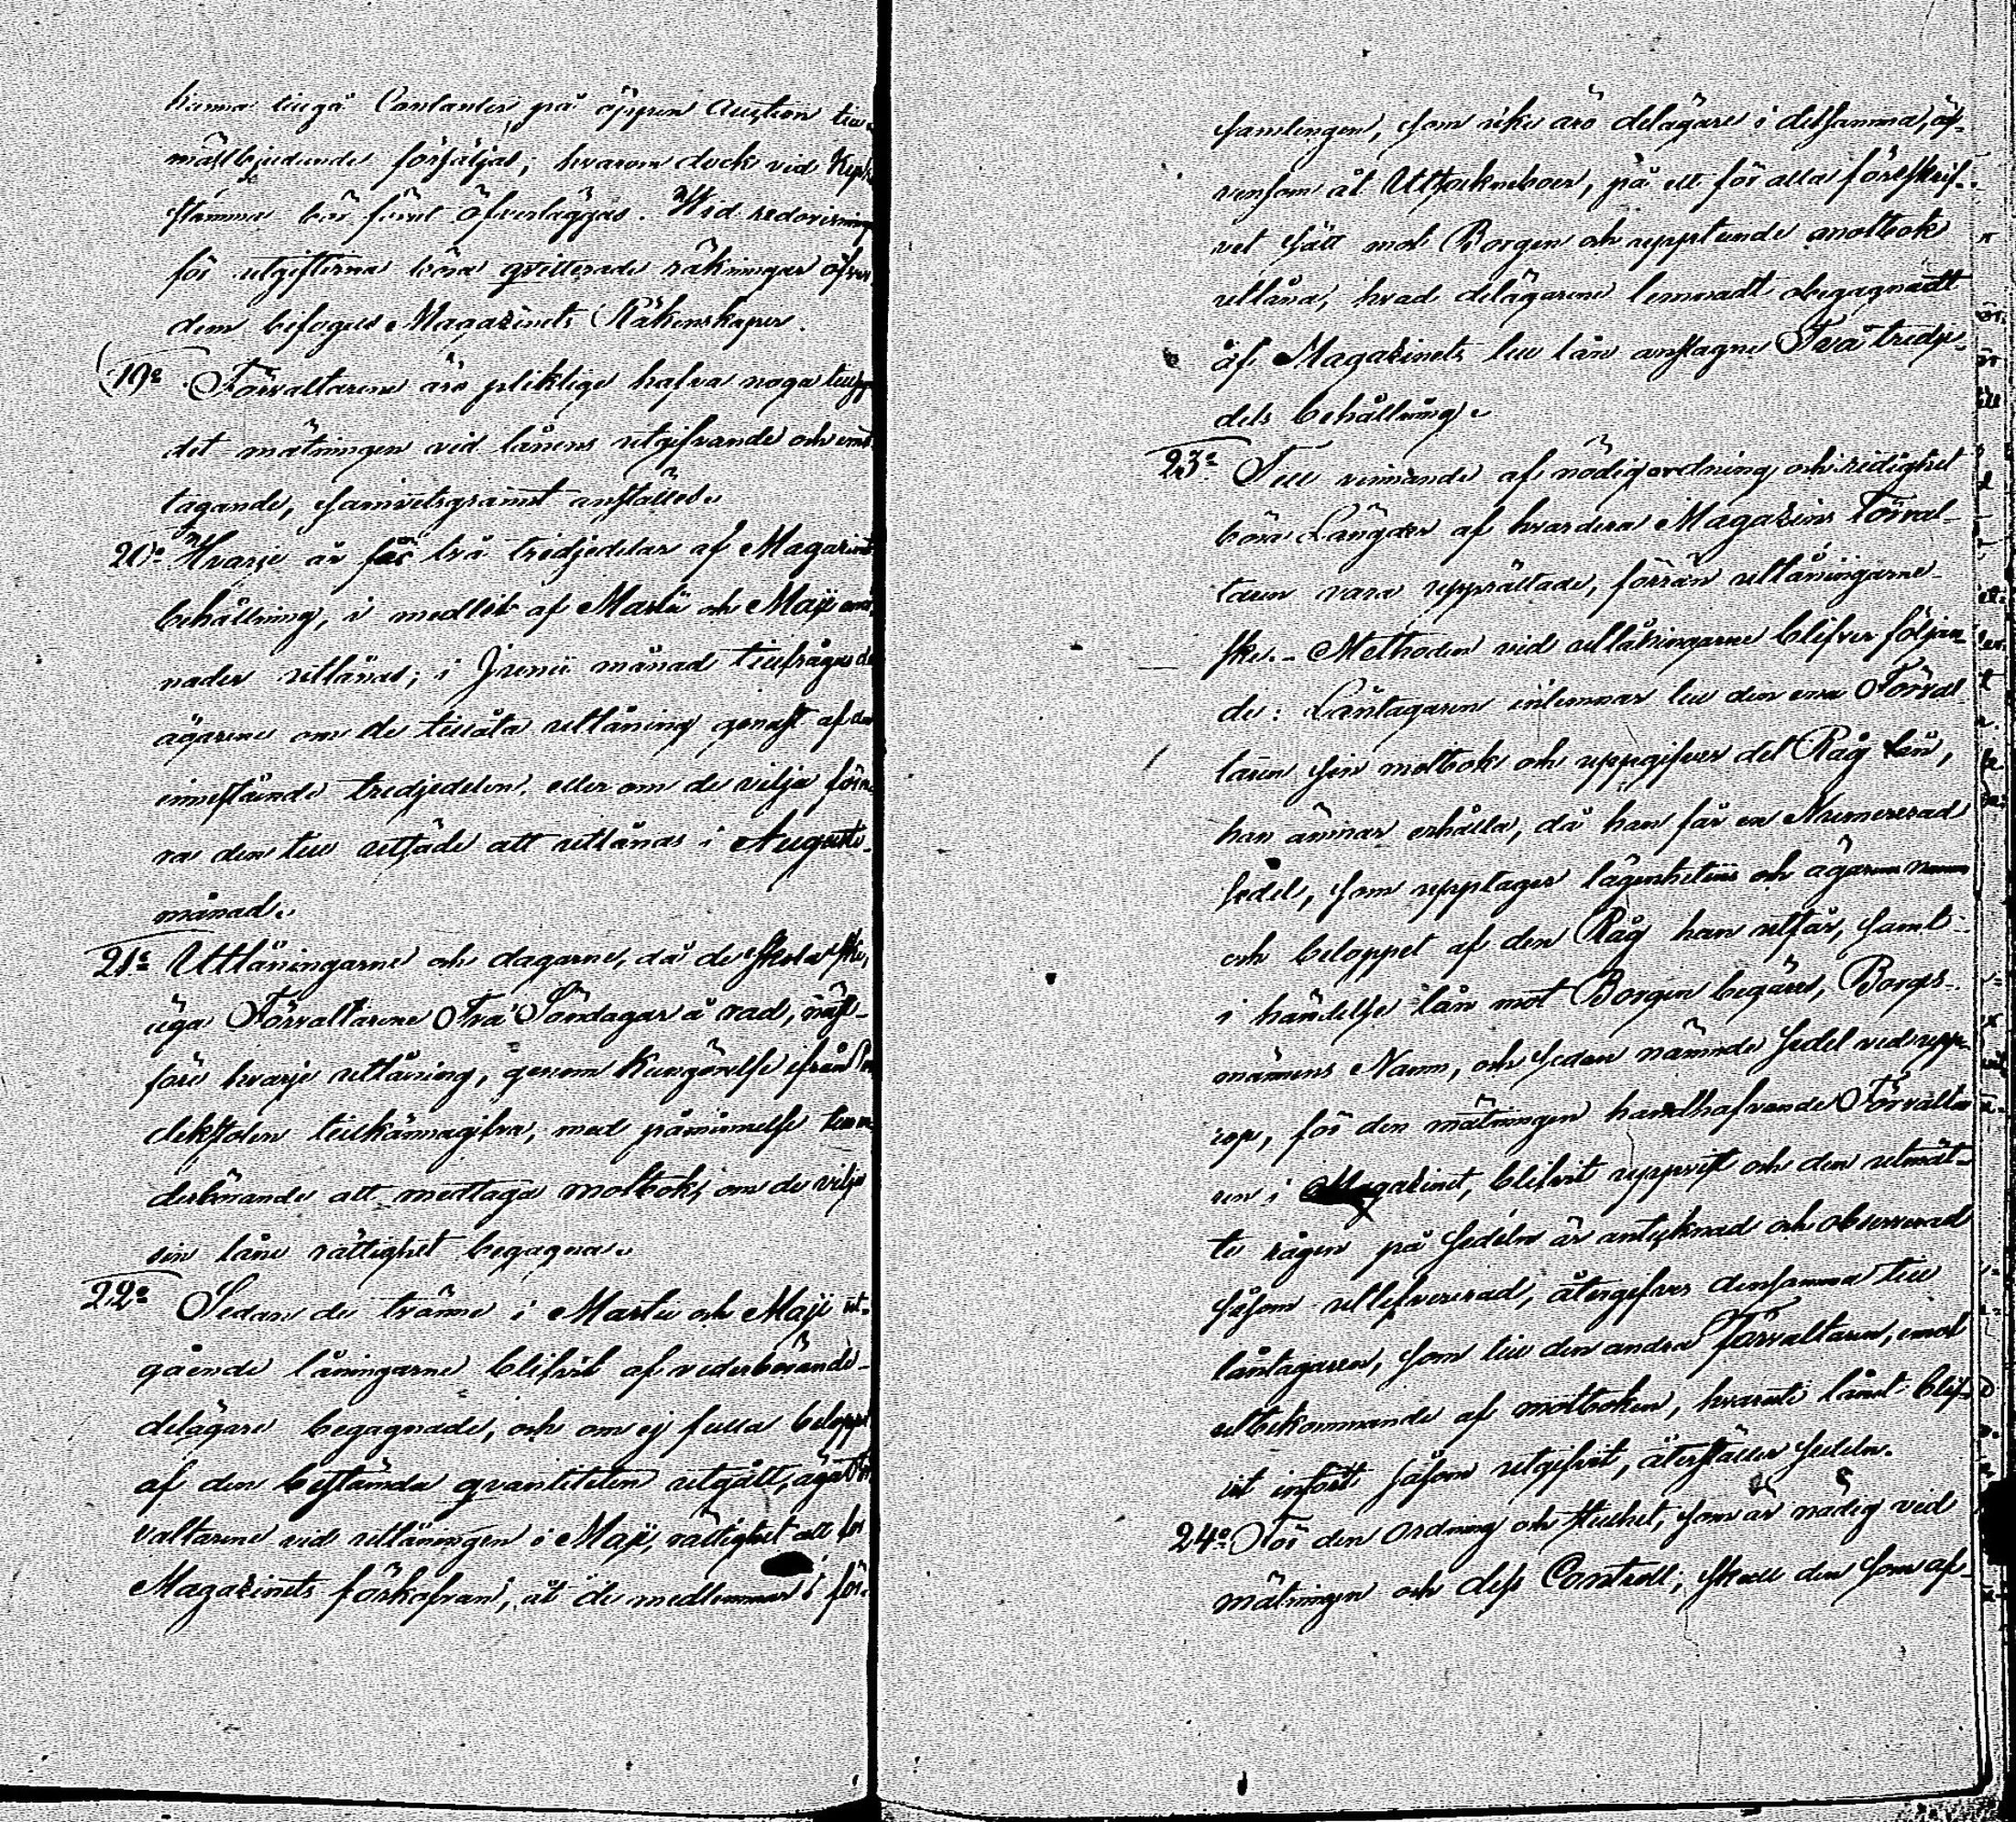 kunna ingå Contanter, på öppen Auction
mästbjudande försäljas, hvarom dock vid Kyrk
stämma bör först öfverläggas. Wid redovisning
för utgifterna böra qvitterade räkningar öfver
dem bifogas Magazinets Räkenskaper.
19o Förvaltarene äro pliktige hafva noga
det mätningen vid lånens utgifvande och
tagande, samvetsgrannt anställes.
20o Hvarje år får två tredjedelar af Magazinets
behållning, i medlet af Martii och Maji må-
nader utlånas; i Junii månad tillfrågas del
ägarene om de tillåta utlåning genast af den
innestående tredjedelen, eller om de vilja förva-
ra den till utsäde att utlånas i Augusti
månad.
21o Utlåningarne och dagarne, då de skola ske,
äga Förvaltarene Två Söndagar å rad, näst
före hvarje utlåning, genom kungörelse ifrån Pre
dikstolen tillkännagifva, med påminnelse
derbörande att medtaga motbok, om de vilja
sin låne rättighet begagna.
22o Sedan de tvänne i Martii och Maji ut-
gående låningarne blifvit af vederbörande
delägare begagnade, och om ej fulla beloppet
af den bestämda qvantiteten utgått, äga För
valtarene vid utlåningen i Maji, rättighet att för
Magazinets förkofran, åt de medlemmar i för-
samlingen, som icke äro delägare i detsamma, äf-
vensom åt Utsockneboer, på ett för alla föreskrif-
vet sätt mot Borgen och upptagande motbok
utlåna, hvad delägarene lemnadt obegagnadt
af Magazinets till lån anslagne Två tredje-
dels behållning.
23o Till vinnande af nödig ordning och redighet
böra Längder af hvardera Magazins Förval-
taren vara upprättade, förrän utlåningarne
ske. - Methoden vid utlåningarne blifver följan-
de: Låntagaren inlemnar till den ena Förval
taren sin motbok och uppgifver det Råg lån,
han ämnar erhålla, då han får en Numererad
sedel, som upptager lägenhetens och ägarens namn
och beloppet af den Råg han utfår, samt
i händelse lån mot Borgen begäres, Borges-
männens Namn, och sedan nämnde sedel vid upp-
rop, för den mätningen handhafvande Förvalta
ren i Magazinet, blifvit uppvist och den utmät-
te rågen på sedeln är antecknad och observerad
såsom utlefvererad, återgifves densamma till
låntagaren, som till den andra Förvaltaren, emot
utbekommande af motboken, hvaruti lånet blif-
vit infört såsom utgifvit, återställer sedeln.
24o För den ordning och stillhet, som är nödig vid
mätningen och dess Controll, skall den som af-